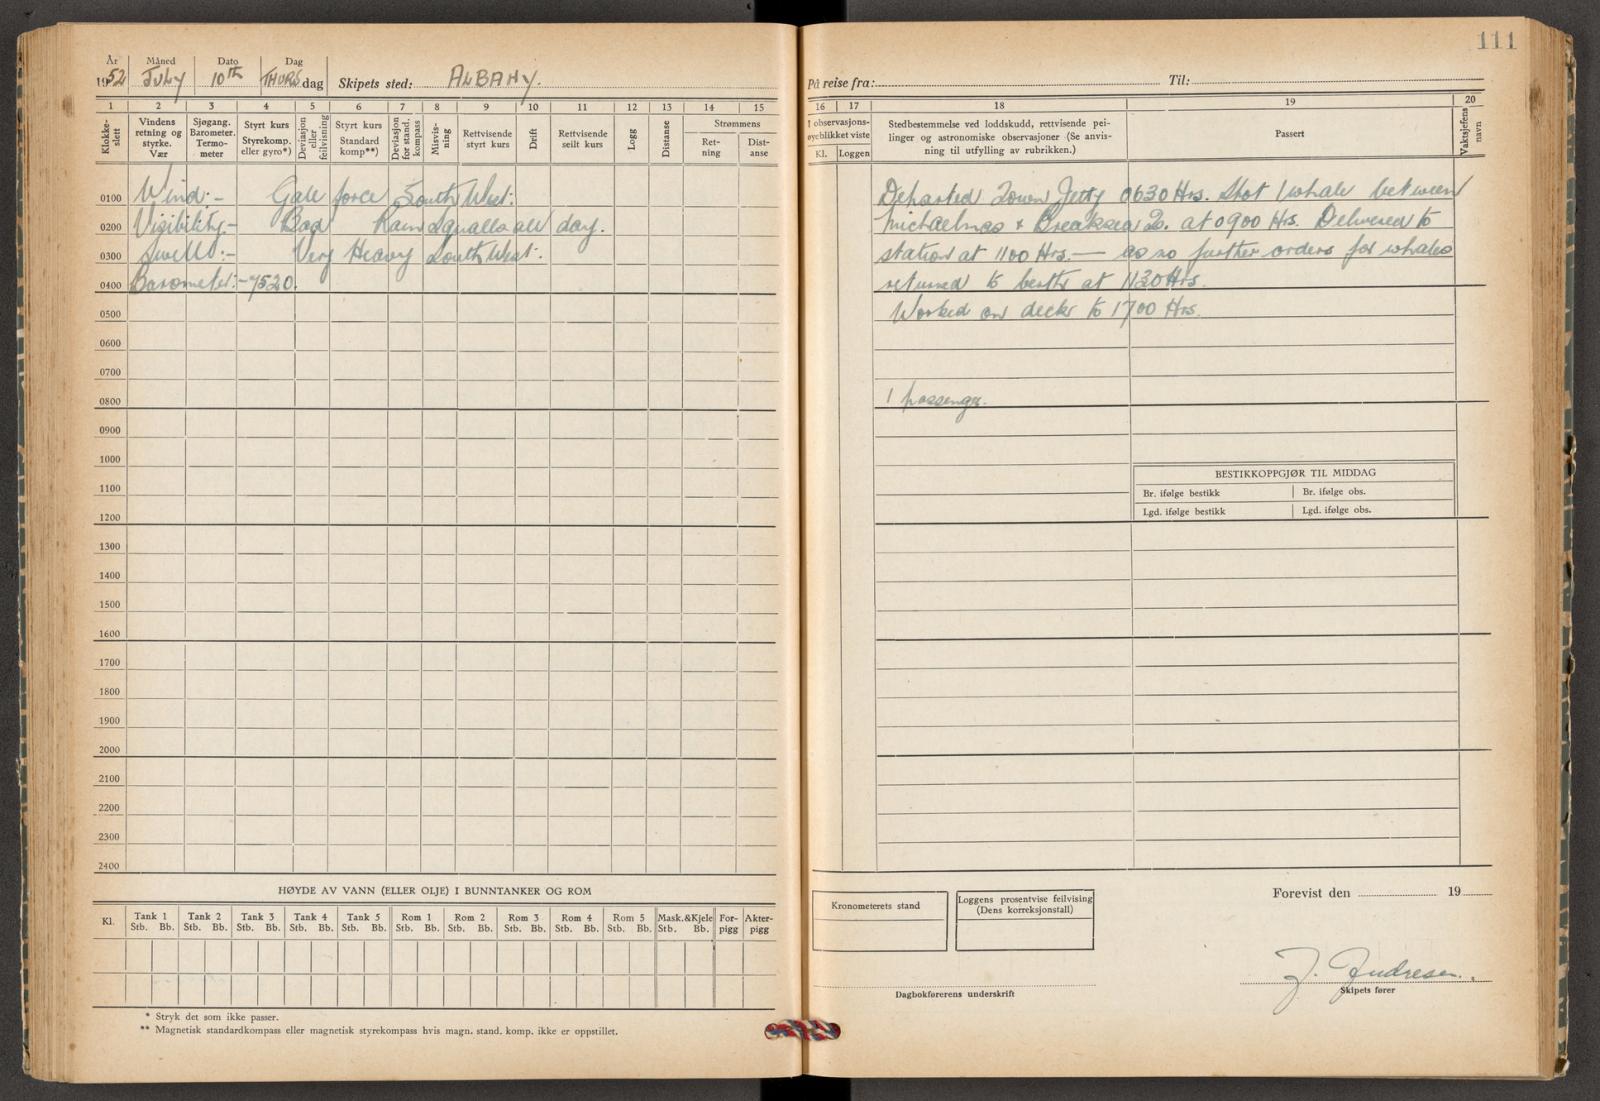 111
År Måned Dato Dag
1952 JULY 10th THURSdag Skipets sted: ALBANY.
1 2 3 4 5 6 7 8 9 10 11 12 13 14 15
Klokke-slett
Vindens retning og styrke. Vær
Sjøgang. Barometer. Termo-meter
Styrt kurs Styrekomp. eller gyro*)
Deviasjon eller feilvisning
Styrt kurs Standard komp**)
Deviasjon for stand. kompass
Misvis-ning
Rettvisende styrt kurs
Drift
Rettvisende seilt kurs
Logg
Distanse
Strømmens
Ret-ning
Dist-anse
0100 Wind:- Gale force South West:
0200 Visibility:- Bad Rain Squalls all day.
0300 Swell:- Very Heavy South West.
0400 Barometer:- 7520.
0500
0600
0700
0800
0900
1000
1100
1200
1300
1400
1500
1600
1700
1800
1900
2000
2100
2200
2300
2400
HØYDE AV VANN (ELLER OLJE) I BUNNTANKER OG ROM
Kl. Tank 1 Tank 2 Tank 3 Tank 4 Tank 5 Rom 1 Rom 2 Rom 3 Rom 4 Rom 5 Mask.&Kjele For-pigg Akter-pigg
Stb. Bb. Stb. Bb. Stb. Bb. Stb. Bb. Stb. Bb. Stb. Bb. Stb. Bb. Stb. Bb. Stb. Bb. Stb. Bb. Stb. Bb.
* Stryk det som ikke passer.
** Magnetisk standardkompass eller magnetisk styrekompass hvis magn. stand. komp. ikke er oppstillet.
På reise fra: Til:
16 17 18 19 20
I observasjons-øyeblikket viste
Kl. Loggen
Stedbestemmelse ved loddskudd, rettvisende pei-
linger og astronomiske observasjoner (Se anvis-
ning til utfylling av rubrikken.)
Passert
Vaktsjefens navn
Departed Town Jetty 0630 Hrs. Shot 1 whale between
Michaelmas + Breaksea Is. at 0900 Hrs. Delivered to
station at 1100 Hrs. — as no further orders for whales
returned to berth at 1130 Hrs.
Worked on decks to 1700 Hrs.
1 passenger.
BESTIKKOPPGJØR TIL MIDDAG
Br. ifølge bestikk Br. ifølge obs.
Lgd. ifølge bestikk Lgd. ifølge obs.
Kronometerets stand
Loggens prosentvise feilvising
(Dens korreksjonstall)
Forevist den 19
Dagbokførerens underskrift
J. Andresen.
Skipets fører